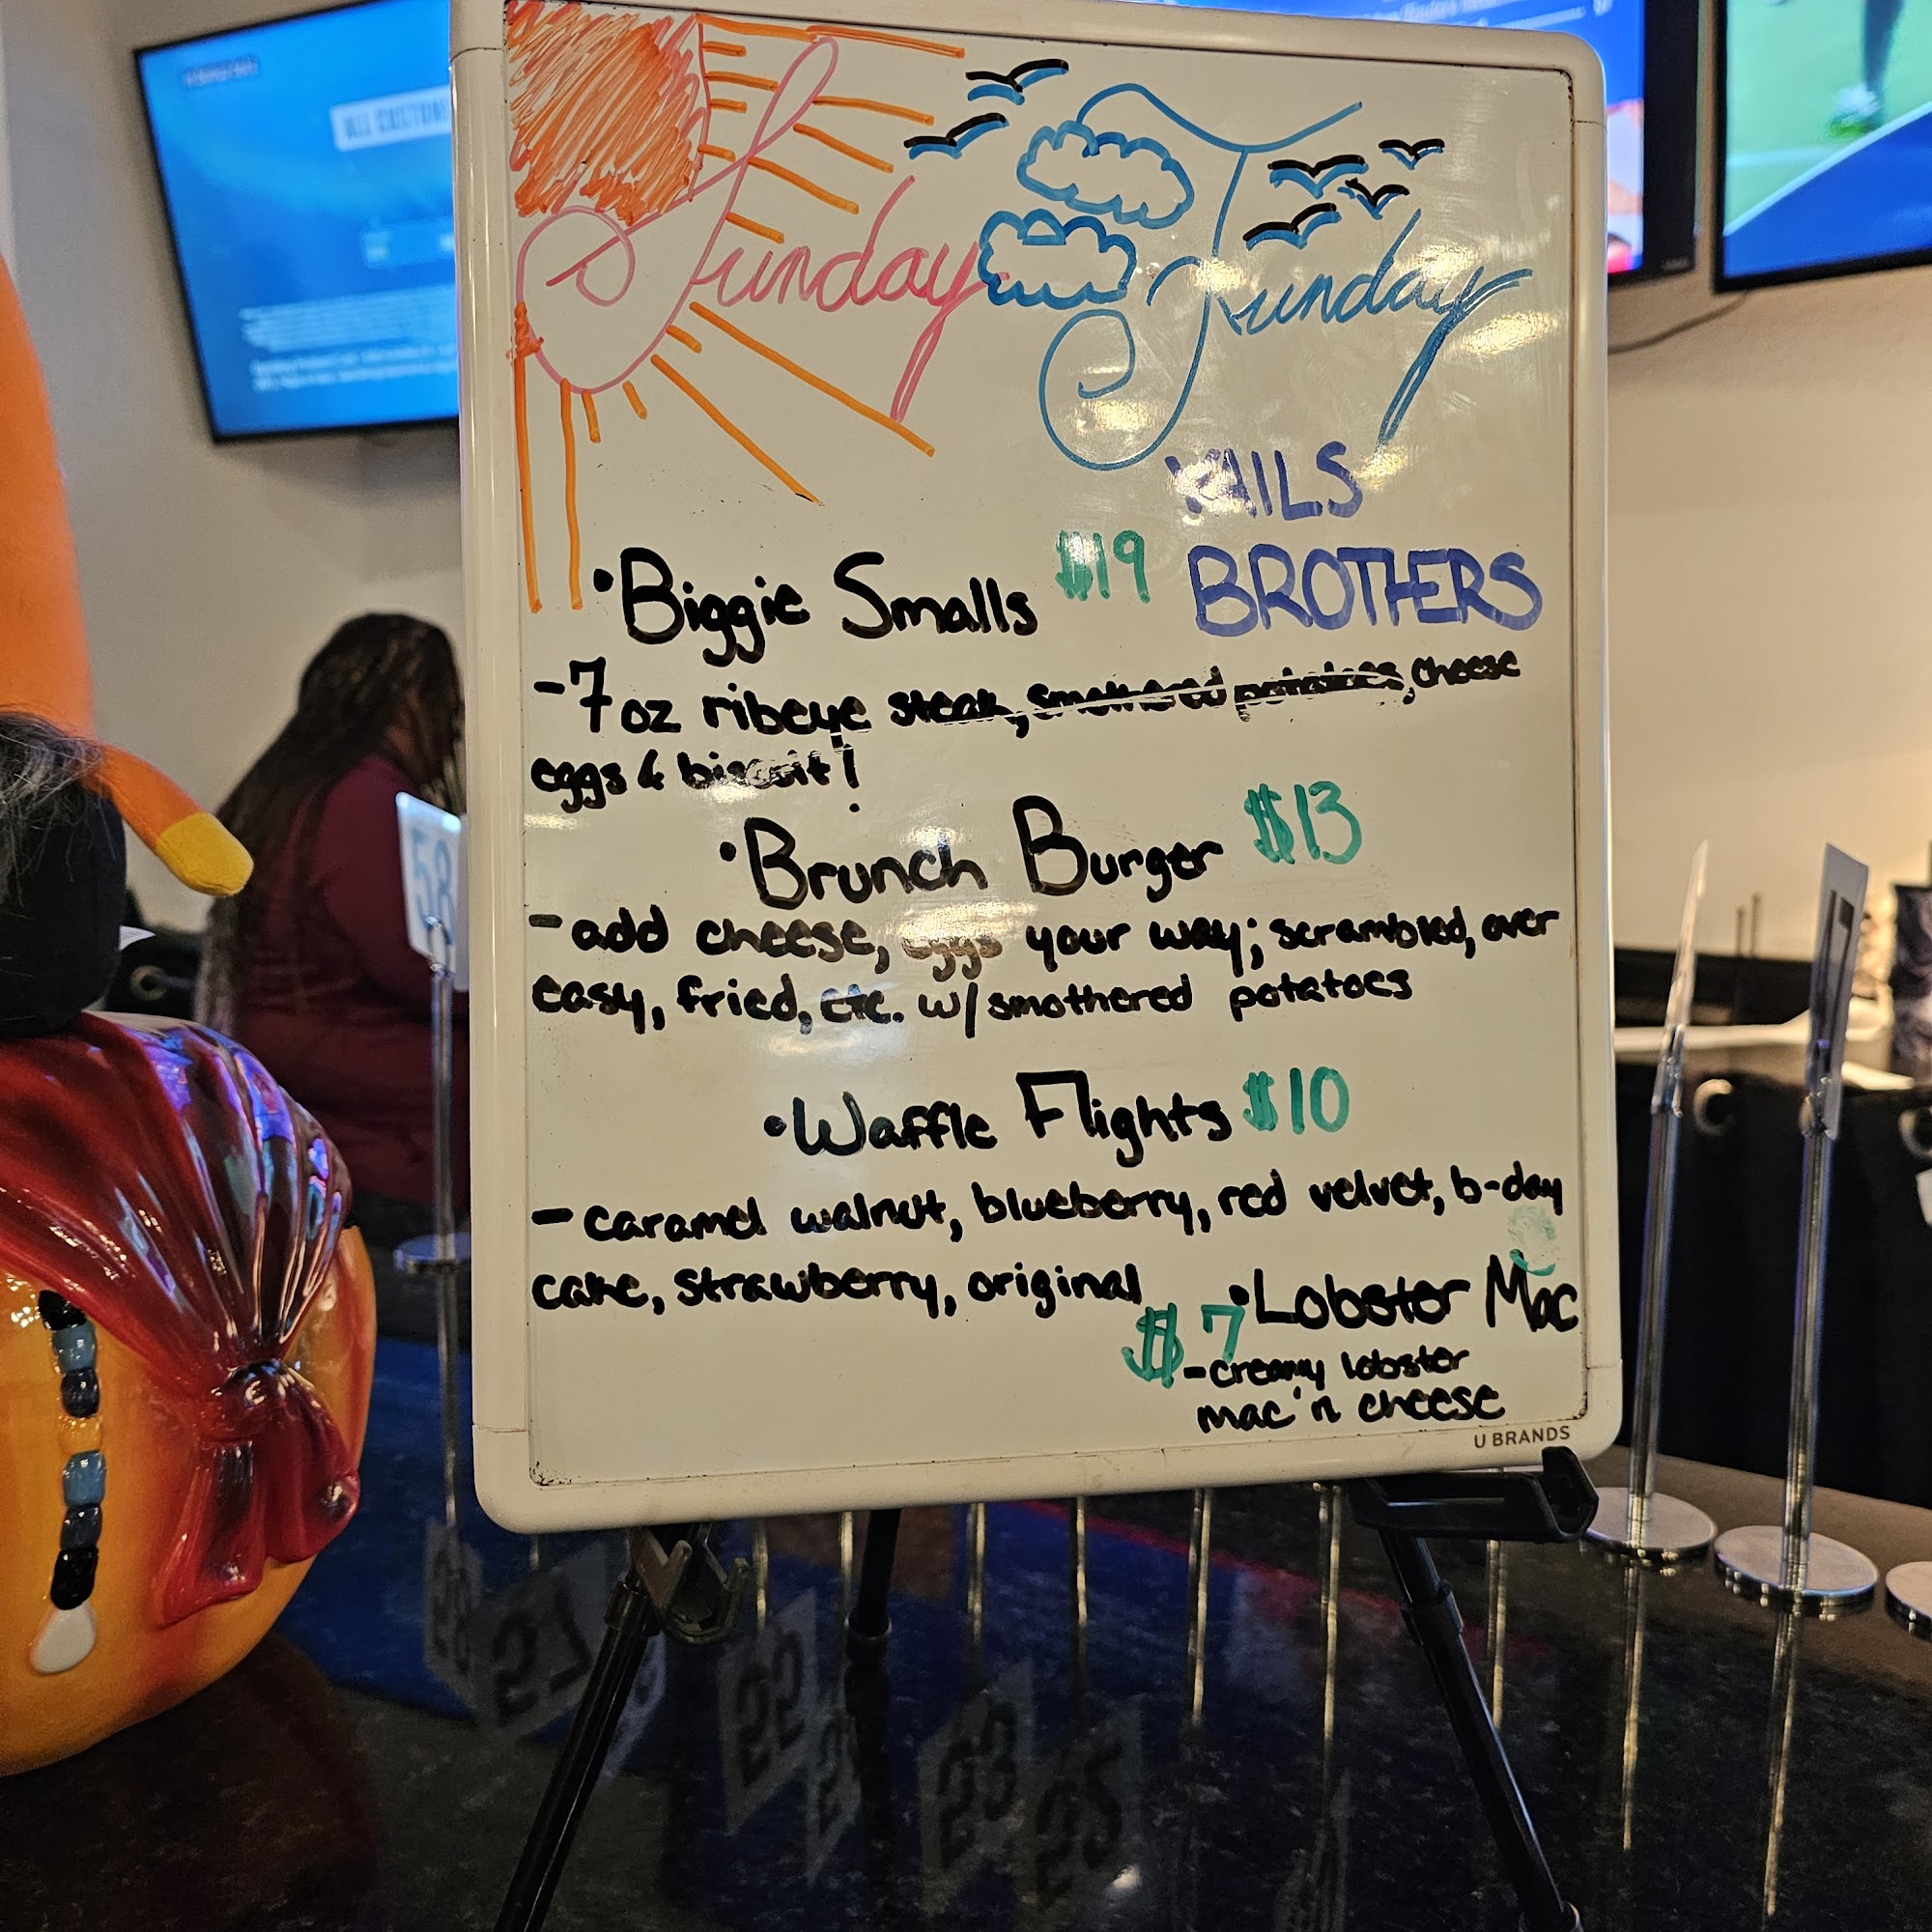 Sunday Funday
VAILS
BROTHERS
•Biggie Smalls $19
-7 oz ribeye steak, smothered potatoes, cheese
eggs & biscuit!
•Brunch Burger $13
-add cheese, eggs your way; scrambled, over
easy, fried, etc. w/smothered potatoes
•Waffle Flights $10
-caramel walnut, blueberry, red velvet, b-day
cake, strawberry, original
•Lobster Mac
$7
-creamy lobster
mac'n cheese
U BRANDS
58